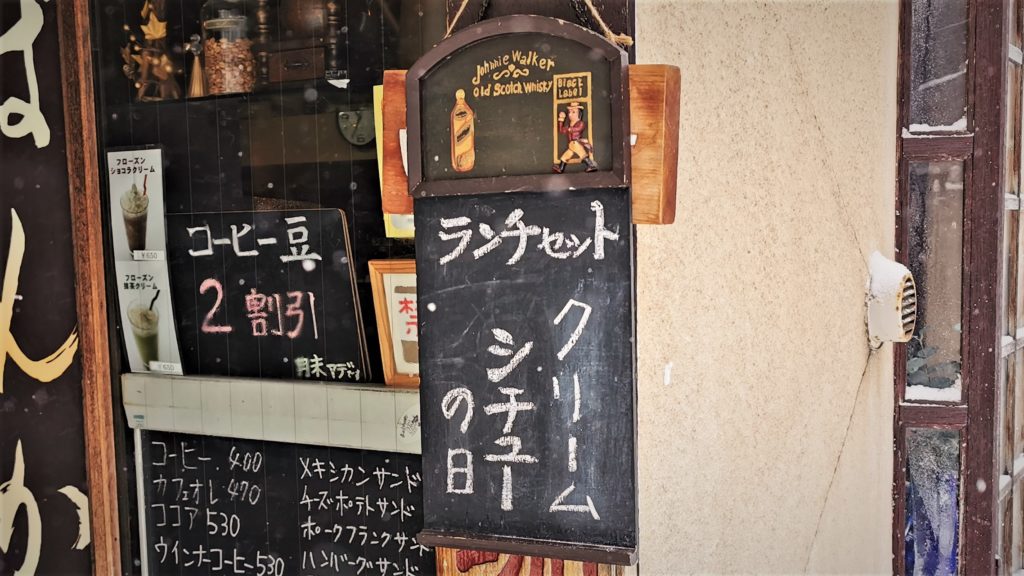 Johnnie Walker
Old Scotch Whisky
Black
Label
ランチセット
クリーム
シチュー
の日
フローズン
ショコラクリーム
¥650
フローズン
抹茶クリーム
¥650
コーヒー豆
2割引
月末マデ
コーヒー 400
カフェオレ 470
ココア 530
ウインナコーヒー 530
メキシカンサンド
チーズポテトサンド
ポークフランクサンド
ハンバーグサンド